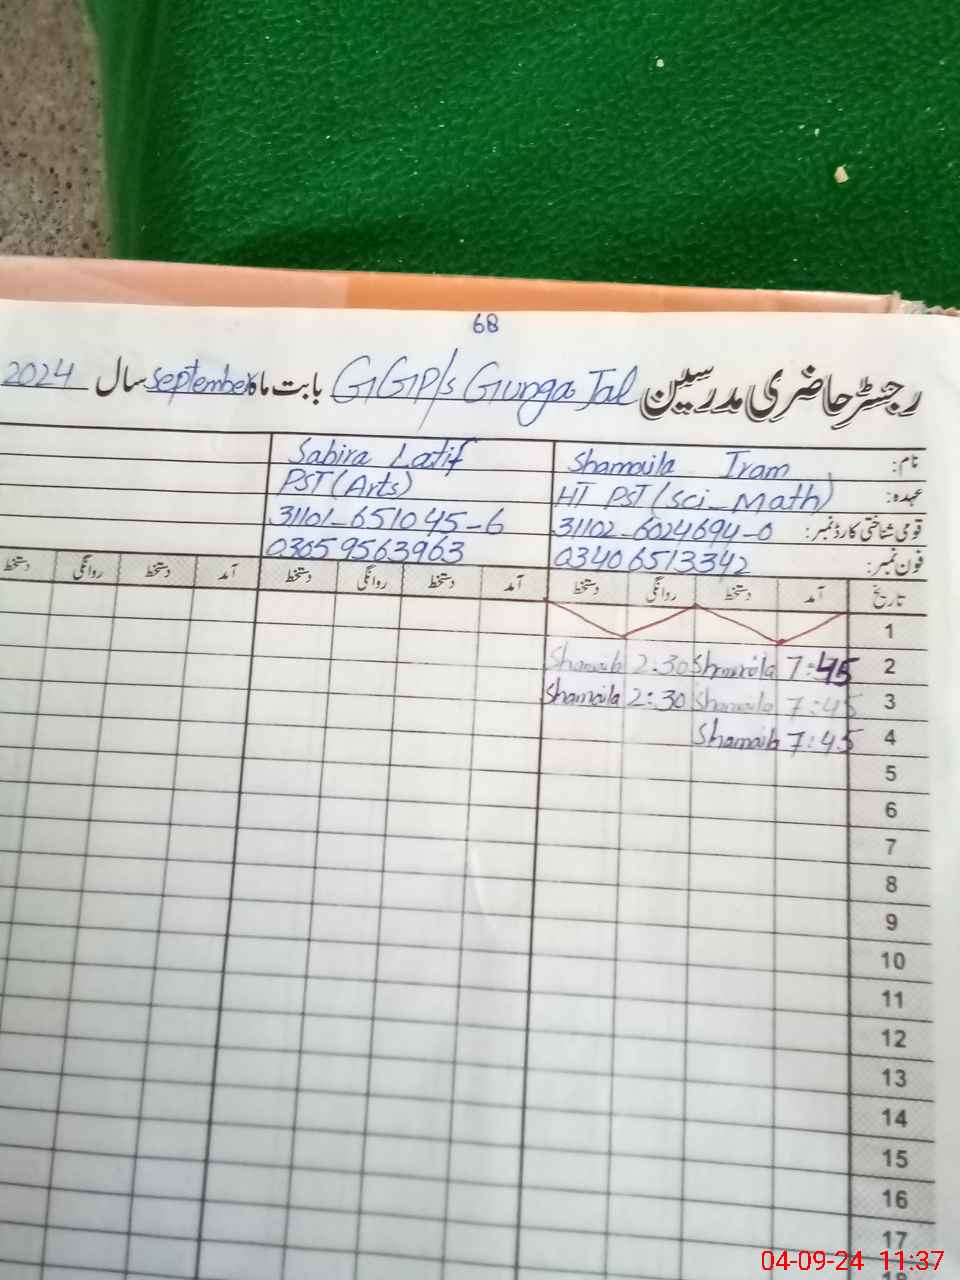 68
رجسٹر حاضری مدرسین GGP/s Gunga Jal بابت ماہ September سال 2024
نام: Shamaila Iram Sabira Latif
عہدہ: HT PST (Sci_Math) PST (Arts)
قومی شناختی کارڈ نمبر: 31102-6024694-0 31101-651045-6
فون نمبر: 03406513342 03059563963
تاریخ آمد دستخط روانگی دستخط آمد دستخط روانگی دستخط آمد دستخط روانگی دستخط
1
2 7:45 Shamaila 2:30 Shamaila
3 7:45 Shamaila 2:30 Shamaila
4 7:45 Shamaila
5
6
7
8
9
10
11
12
13
14
15
16
17
18
04-09-24 11:37